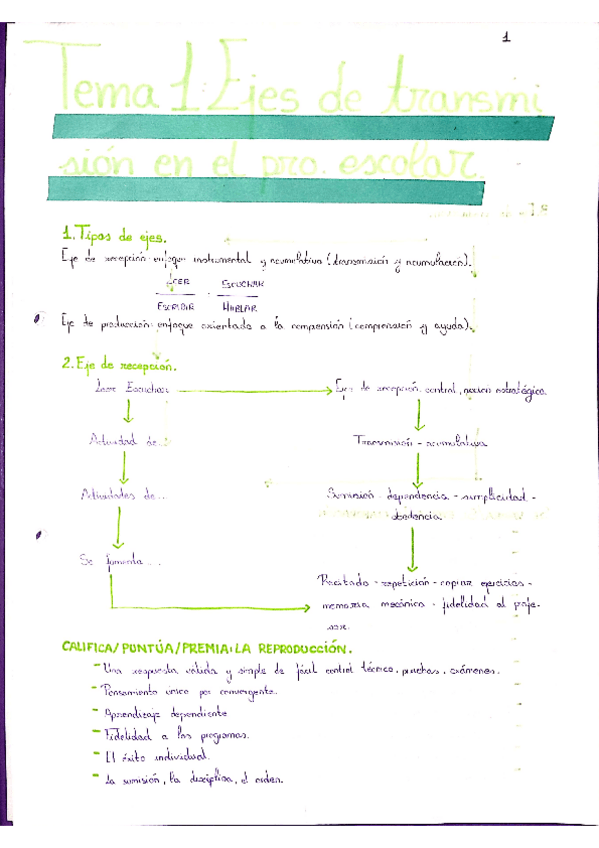 1
Tema 1: Ejes de transmi
sión en el pro. escolar.
1. Tipos de ejes.
Eje de recepción: enfoque instrumental y acumulativo (transmisión y acumulación).
LEER ESCUCHAR
ESCRIBIR HABLAR
Eje de producción: enfoque orientado a la compensión (comprensión y ayuda).
2. Eje de recepción.
Leer Escuchar Ejes de recepción control, acción estratégica.
Actividad de... Transmisión - acumulativa
Actividades de... Sumisión - dependencia - simplicidad -
obediencia.
Se fomenta... Recitado - repetición - copiar ejercicios -
memoria mecánica - fidelidad al profe-
sor.
CALIFICA/PUNTÚA/PREMIA: LA REPRODUCCIÓN.
- Una respuesta válida y simple de fácil control técnico, pruebas, exámenes.
- Pensamiento único por convergente.
- Aprendizaje dependiente
- Fidelidad a los programas.
- El éxito individual.
- La sumisión, la disciplina, el orden.